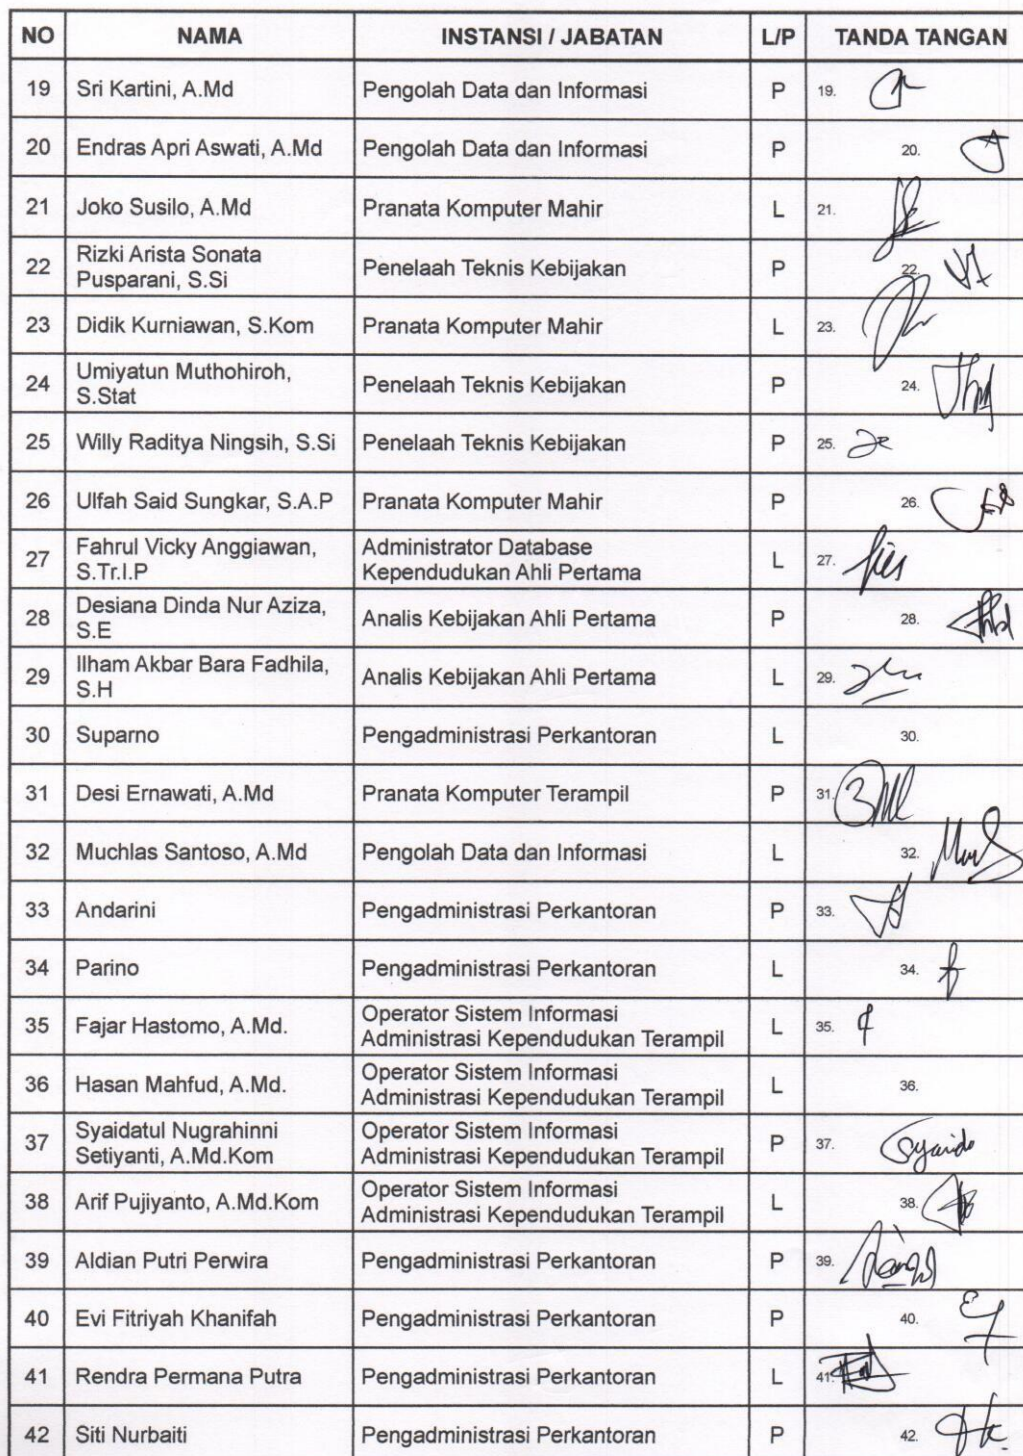 NO NAMA INSTANSI / JABATAN L/P TANDA TANGAN
19 Sri Kartini, A.Md Pengolah Data dan Informasi P 19.
20 Endras Apri Aswati, A.Md Pengolah Data dan Informasi P 20.
21 Joko Susilo, A.Md Pranata Komputer Mahir L 21.
22 Rizki Arista Sonata
Pusparani, S.Si Penelaah Teknis Kebijakan P 22.
23 Didik Kurniawan, S.Kom Pranata Komputer Mahir L 23.
24 Umiyatun Muthohiroh,
S.Stat Penelaah Teknis Kebijakan P 24.
25 Willy Raditya Ningsih, S.Si Penelaah Teknis Kebijakan P 25.
26 Ulfah Said Sungkar, S.A.P Pranata Komputer Mahir P 26.
27 Fahrul Vicky Anggiawan,
S.Tr.I.P Administrator Database
Kependudukan Ahli Pertama L 27.
28 Desiana Dinda Nur Aziza,
S.E Analis Kebijakan Ahli Pertama P 28.
29 Ilham Akbar Bara Fadhila,
S.H Analis Kebijakan Ahli Pertama L 29.
30 Suparno Pengadministrasi Perkantoran L 30.
31 Desi Ernawati, A.Md Pranata Komputer Terampil P 31.
32 Muchlas Santoso, A.Md Pengolah Data dan Informasi L 32.
33 Andarini Pengadministrasi Perkantoran P 33.
34 Parino Pengadministrasi Perkantoran L 34.
35 Fajar Hastomo, A.Md. Operator Sistem Informasi
Administrasi Kependudukan Terampil L 35.
36 Hasan Mahfud, A.Md. Operator Sistem Informasi
Administrasi Kependudukan Terampil L 36.
37 Syaidatul Nugrahinni
Setiyanti, A.Md.Kom Operator Sistem Informasi
Administrasi Kependudukan Terampil P 37.
38 Arif Pujiyanto, A.Md.Kom Operator Sistem Informasi
Administrasi Kependudukan Terampil L 38.
39 Aldian Putri Perwira Pengadministrasi Perkantoran P 39.
40 Evi Fitriyah Khanifah Pengadministrasi Perkantoran P 40.
41 Rendra Permana Putra Pengadministrasi Perkantoran L 41.
42 Siti Nurbaiti Pengadministrasi Perkantoran P 42.